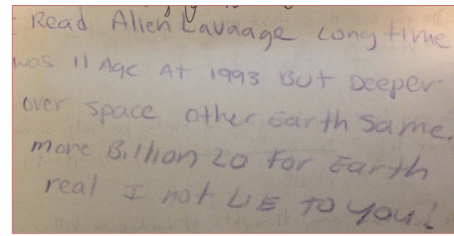 Read Alien Lavaage Long time
was 11 Age At 1993 But Deeper
over space other Earth same.
more Billion 20 for Earth
real I not LIE TO you!